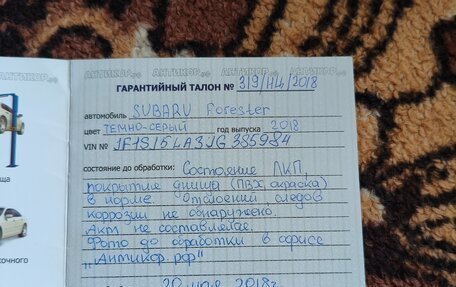 АНТИКОР.рф АНТИКОР.рф АНТИКОР.рф АНТИКОР.рф АНТИКОР.рф
ГАРАНТИЙНЫЙ ТАЛОН № 319/Н4/2018
автомобиль SUBARU Forester
цвет ТЕМНО-СЕРЫЙ год выпуска 2018
VIN № JF1SJ5LA3JG385984
состояние до обработки: Состояние ЛКП,
покрытие днища (ПВХ, окраска)
в норме. Отслоений, следов
коррозии не обнаружено.
Акт не составлялся.
Фото до обработки в офисе
„Антикор.рф"
2018г.
ща
сочного